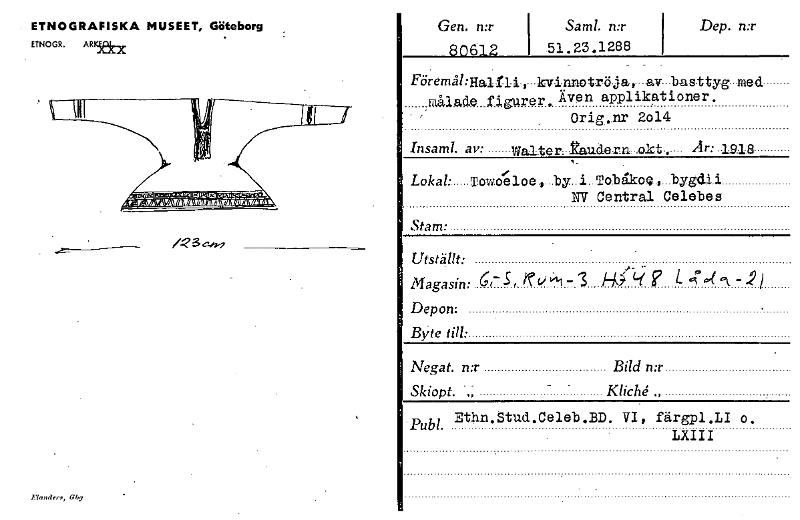 ETNOGRAFISKA MUSEET, Göteborg
ETNOGR. ARKEOL.
XXX
123cm
Elanders, Gbg
Gen. n:r Saml. n:r Dep. n:r
80612 51.23.1288
Föremål: Halíli, kvinnotröja, av basttyg med
målade figurer. Även applikationer.
Orig.nr 2o14
Insaml. av: Walter Kaudern okt. År: 1918
Lokal: Towóeloe, by i Tobákoę, bygd i
NV Central Celebes
Stam:
Utställt:
Magasin: G.-S. Rum-3 H 48 Låda-21
Depon:
Byte till:
Negat. n:r Bild n:r
Skiopt. „ Kliché „
Publ. Ethn.Stud.Celeb.BD. VI, färgpl.LI o.
LXIII